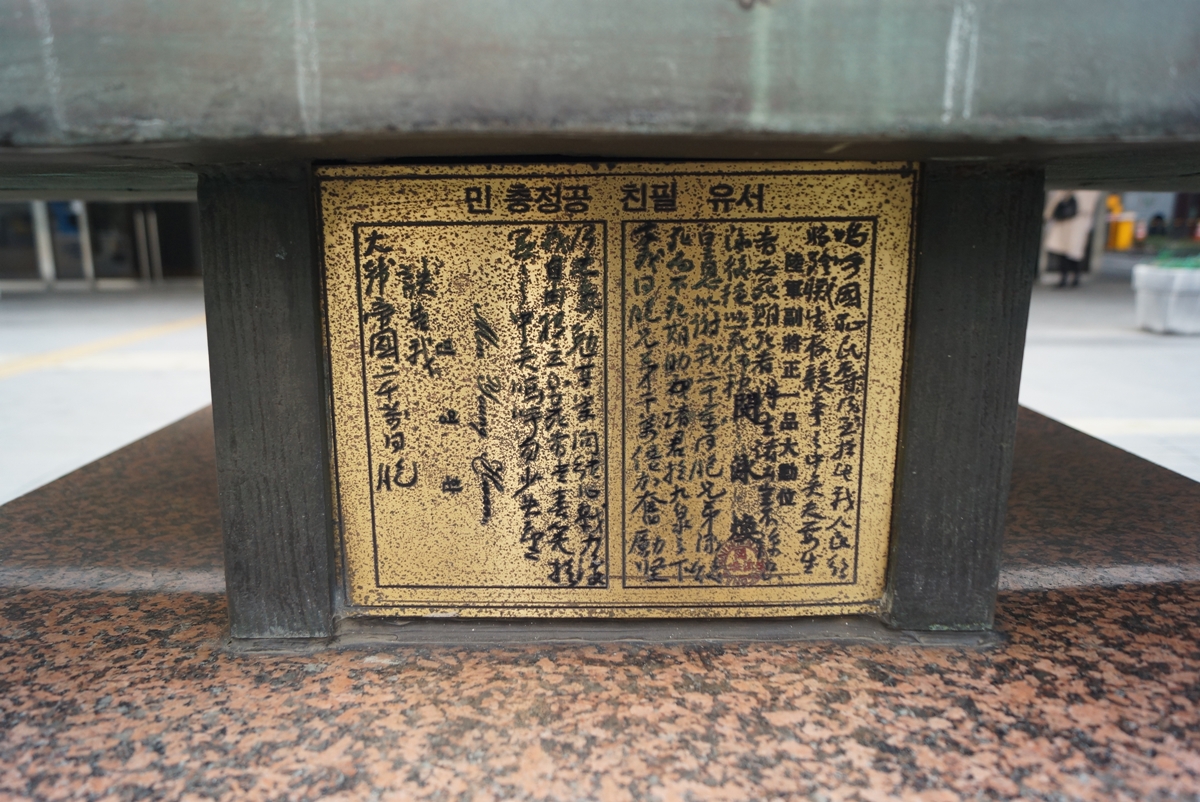 민 충정공 친필 유서
嗚呼國恥民辱乃至於此我人民行
將殄滅於生存競爭之中矣夫要生
陸軍副將正一品大勳位
者必死期死者得生諸公豈不諒只
閔泳煥
泳煥徒以一死仰報
皇恩以謝我二千萬同胞兄弟泳煥
死而不死期助諸君於九泉之下
幸我同胞兄弟千萬倍加奮勵堅
乃志氣勉其學問結心戮力復
我自由獨立則死者當喜笑於
冥冥之中矣嗚呼勿少失望
Min Young Whan
訣告我
大韓帝國二千萬同胞